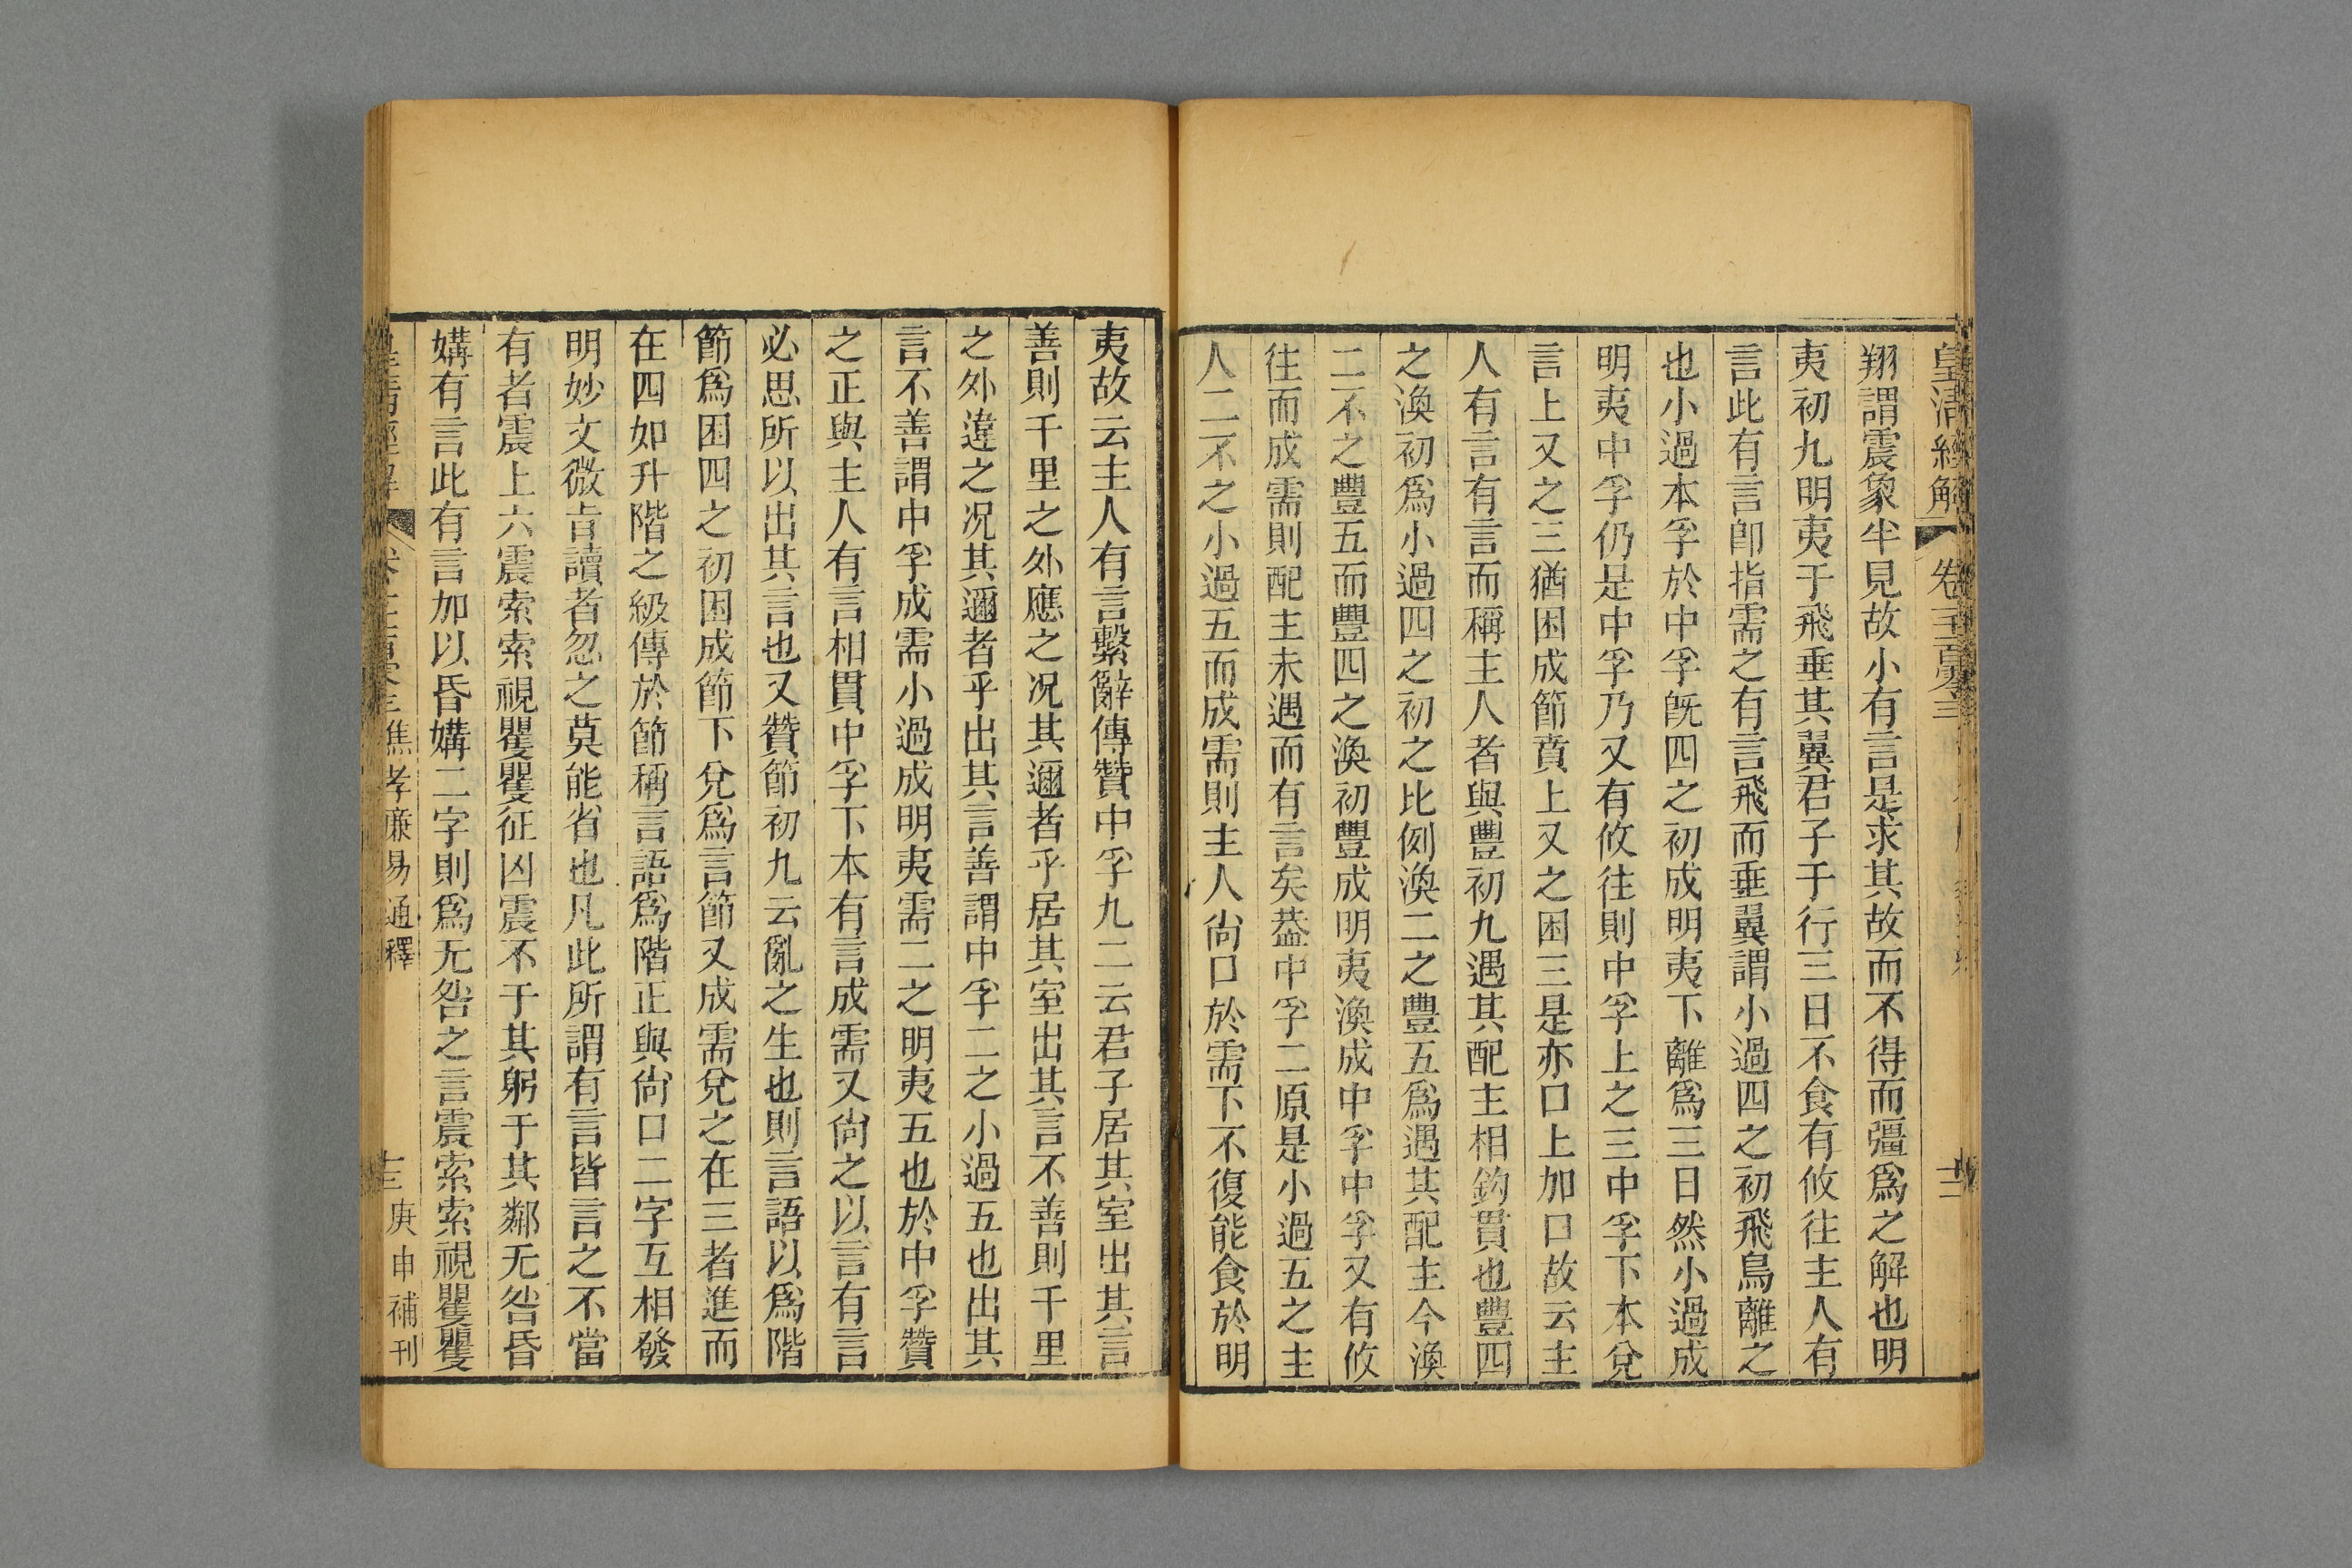 皇清經解 卷三
翔謂震象半見故小有言是求其故而不得而彊爲之解也明
夷初九明夷于飛垂其翼君子于行三日不食有攸往主人有
言此有言卽指需之有言飛而垂翼謂小過四之初飛鳥離之
也小過本孚於中孚旣四之初成明夷下離爲三日然小過成
明夷中孚仍是中孚乃又有攸往則中孚上之三中孚下本兌
言上又之三猶困成節賁上又之困三是亦口上加口故云主
人有言有言而稱主人者與豐初九遇其配主相鈎貫也豐四
之渙初爲小過四之初之比例渙二之豐五爲遇其配主今渙
二不之豐五而豐四之渙初豐成明夷渙成中孚中孚又有攸
往而成需則配主未遇而有言矣葢中孚二原是小過五之主
人二不之小過五而成需則主人尙口於需下不復能食於明
夷故云主人有言繫辭傳贊中孚九二云君子居其室出其言
善則千里之外應之况其邇者乎居其室出其言不善則千里
之外違之况其邇者乎出其言善謂中孚二之小過五也出其
言不善謂中孚成需小過成明夷需二之明夷五也於中孚贊
之正與主人有言相貫中孚下本有言成需又尙之以言有言
必思所以出其言也又贊節初九云亂之生也則言語以爲階
節爲困四之初困成節下兌爲言節又成需兌之在三者進而
在四如升階之級傳於節稱言語爲階正與尙口二字互相發
明妙文微旨讀者忽之莫能省也凡此所謂有言皆言之不當
有者震上六震索索視矍矍征凶震不于其躬于其鄰无咎昏
媾有言此有言加以昏媾二字則爲无咎之言震索索視矍矍
焦孝廉易通釋 十三 庚申補刊